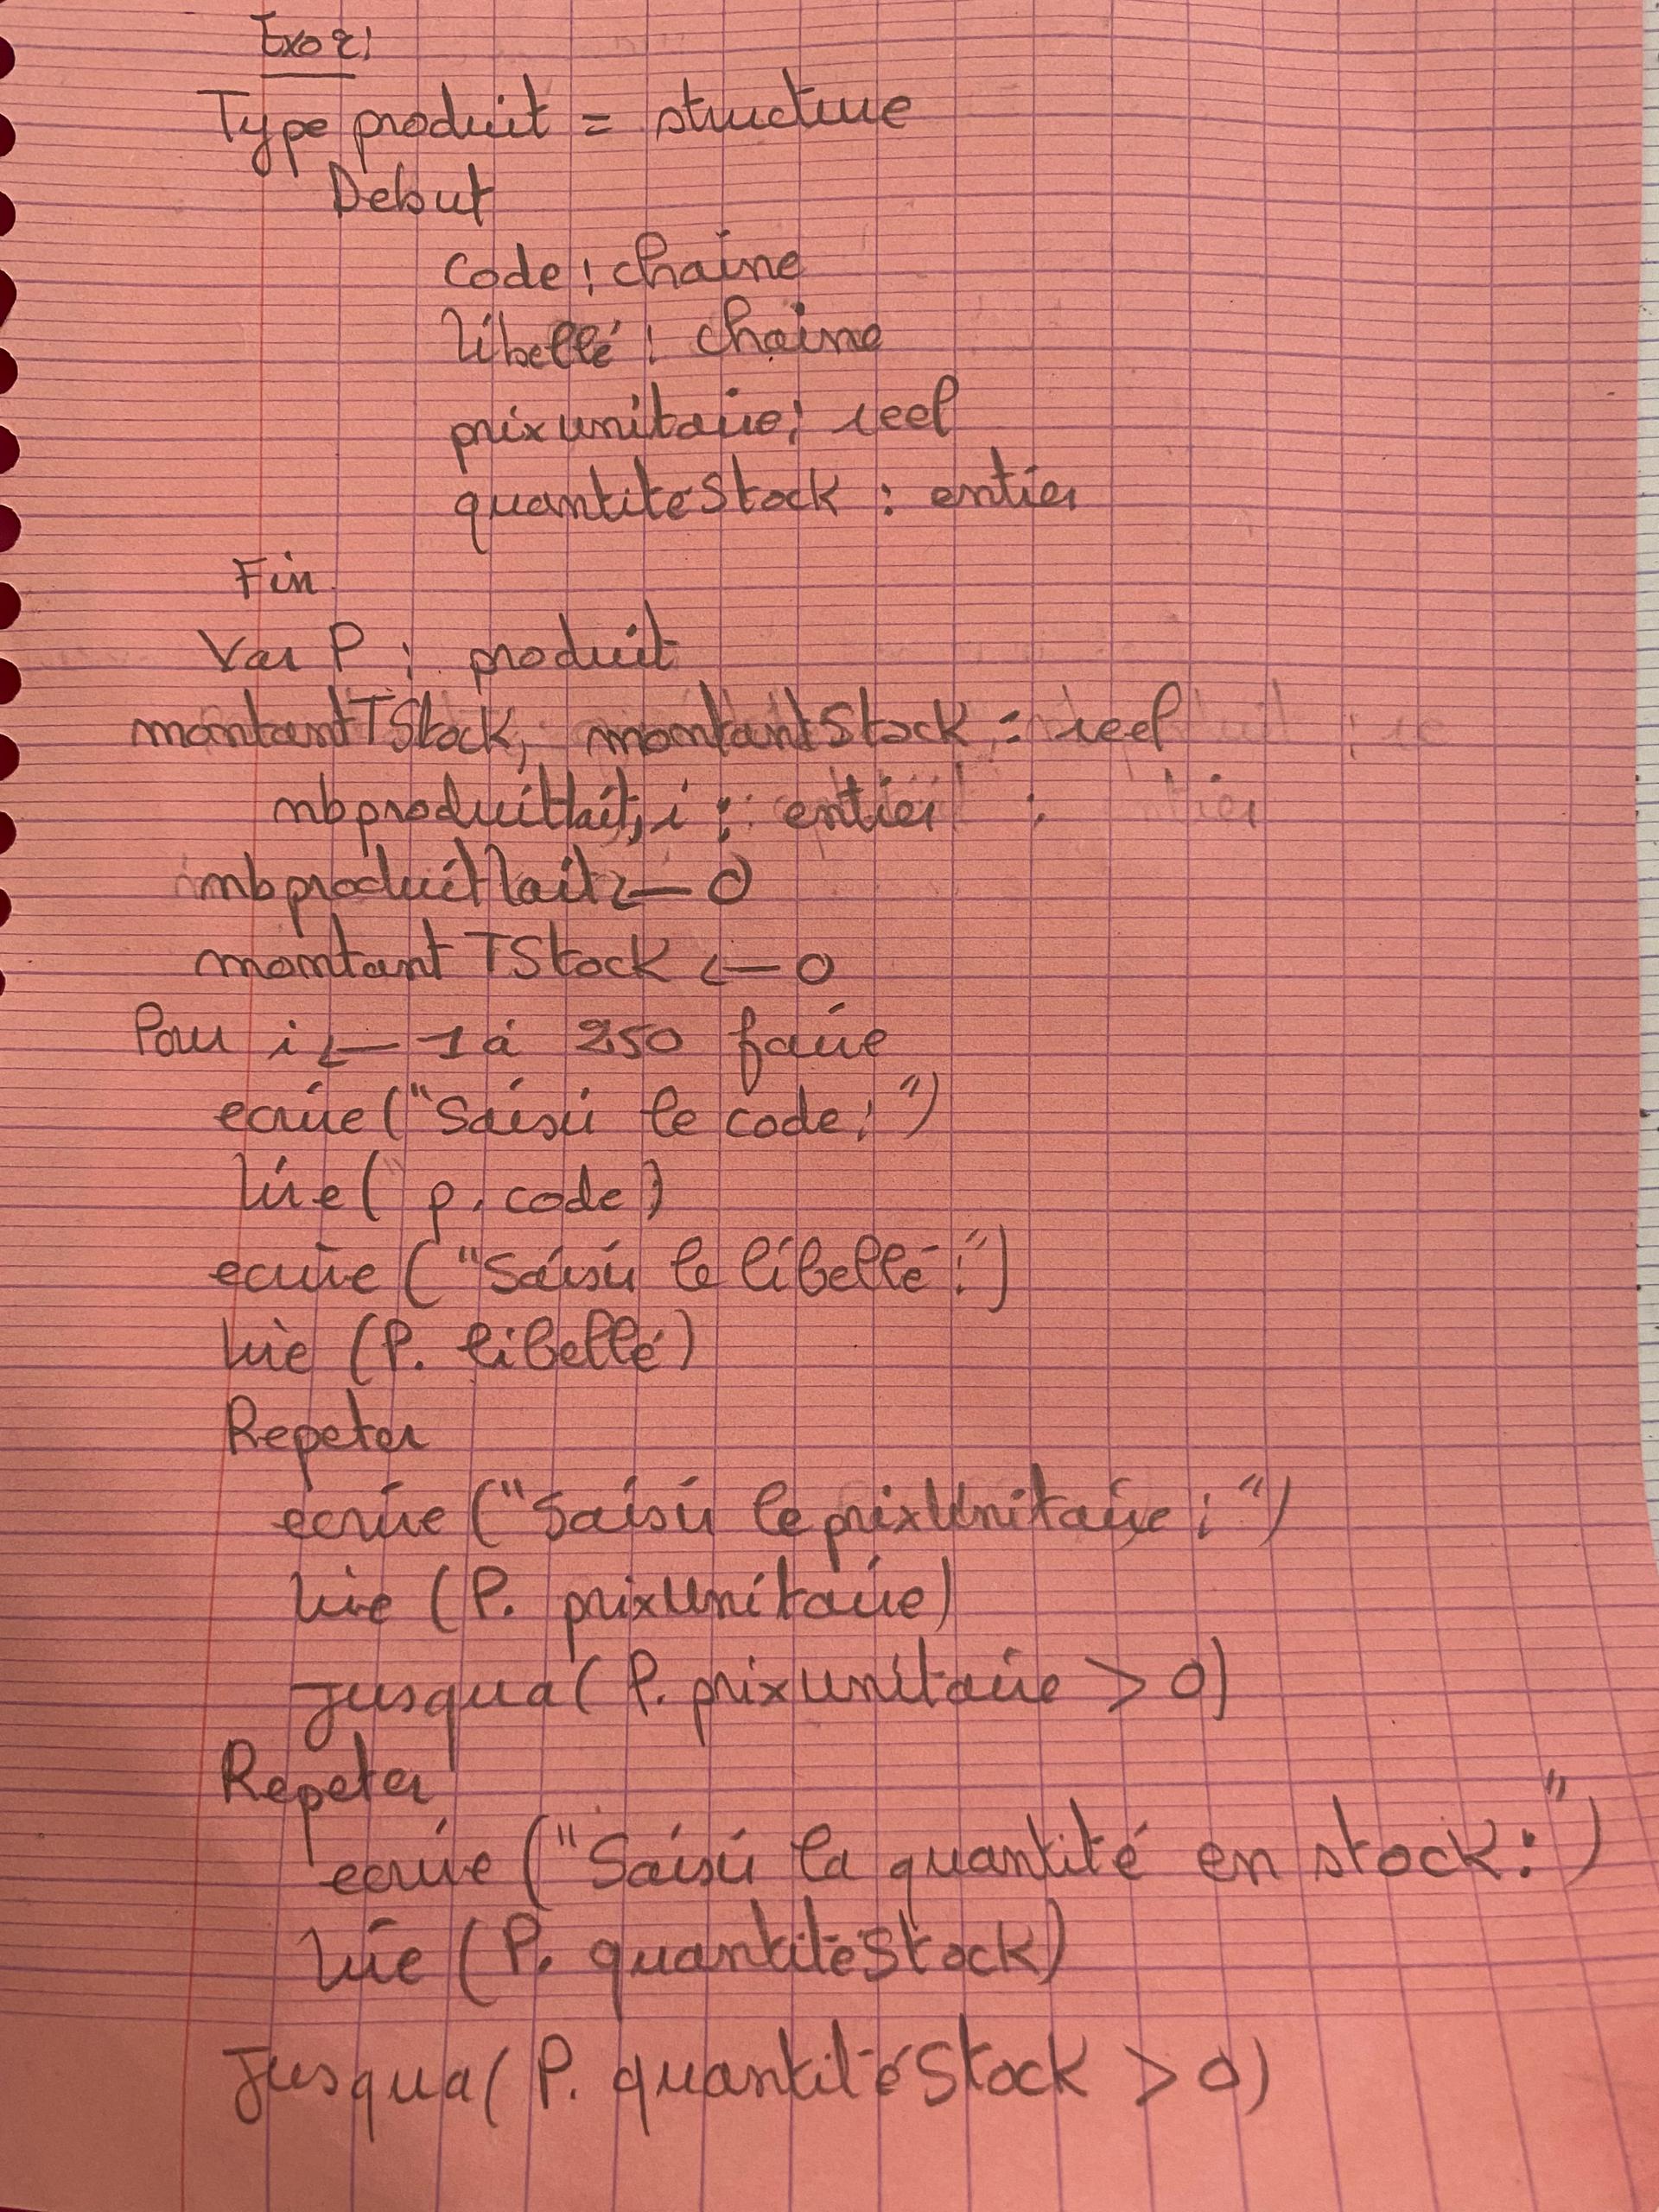 Exo 2:
Type produit = structure
Debut
Code : chaine
libellé : chaine
prixunitaire : reel
quantitéStock : entier
Fin
Var P : produit
montantTStock, montantStock : reel
nbproduitlait, i : entier
nbproduitlait ← 0
montantTStock ← 0
Pour i ← 1 à 250 faire
ecrire ("Saisir le code : ")
lire (p.code)
ecrire ("Saisir le libellé : ")
lire (P.libellé)
Repeter
ecrire ("Saisir le prixUnitaire : ")
lire (P.prixUnitaire)
jusqua (P.prixunitaire > 0)
Repeter
ecrire ("Saisir la quantité en stock : ")
lire (P.quantitéStock)
Jusqua (P.quantitéStock > 0)